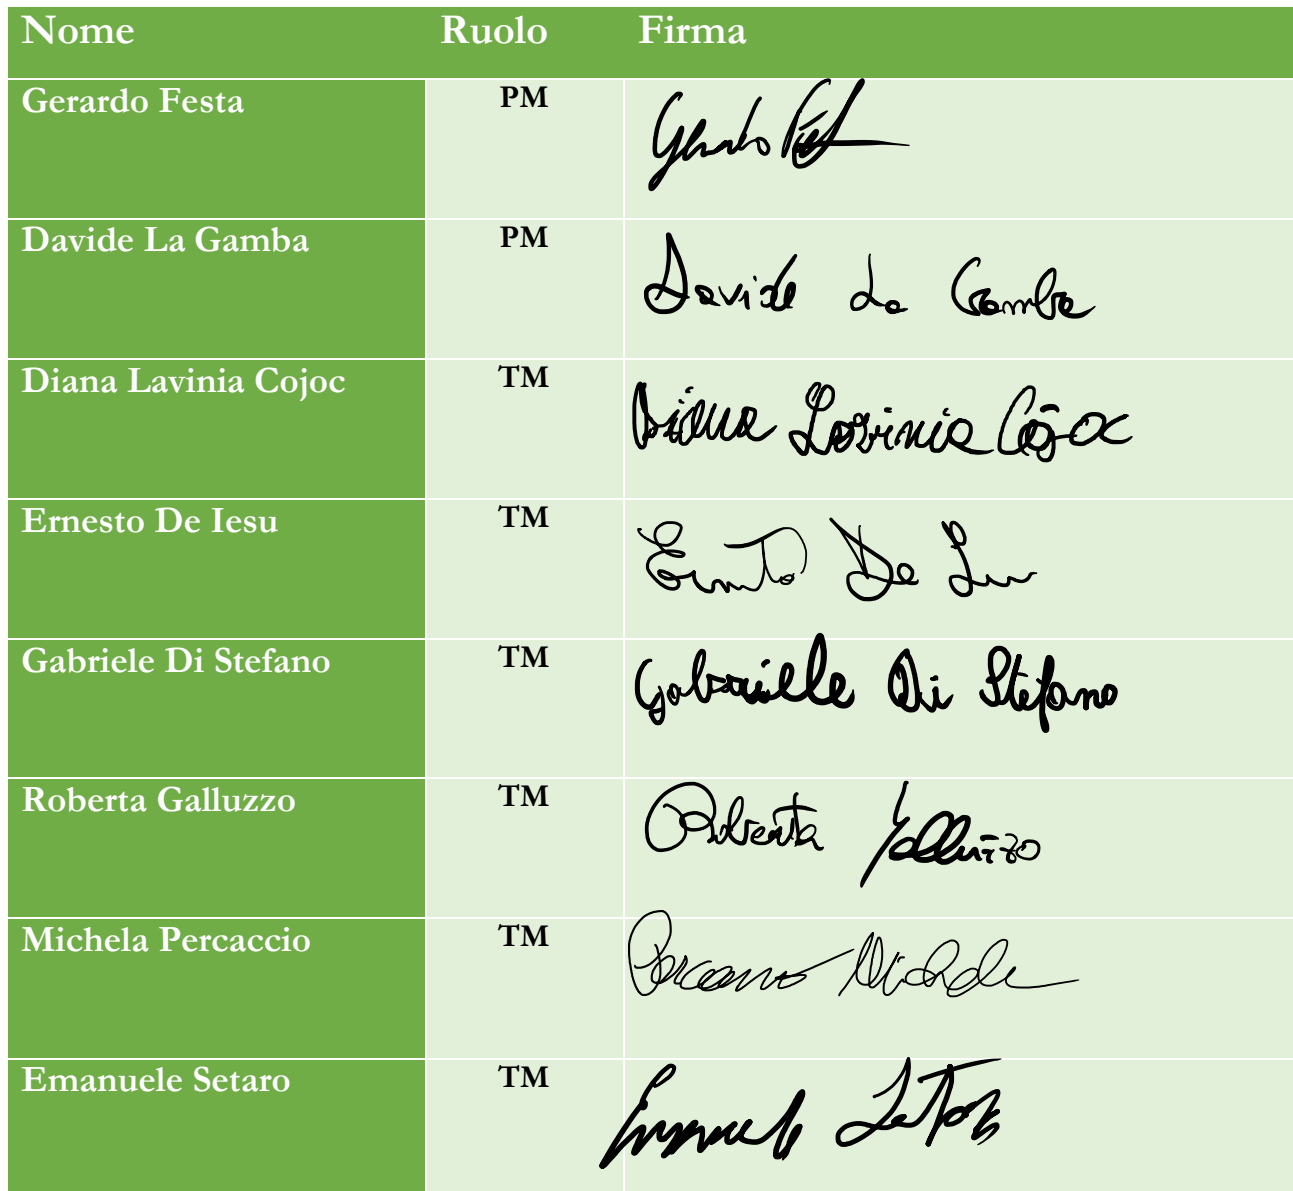 Nome Ruolo Firma
Gerardo Festa PM Gerardo Festa
Davide La Gamba PM Davide La Gamba
Diana Lavinia Cojoc TM Diana Lavinia Cojoc
Ernesto De Iesu TM Ernesto De Iesu
Gabriele Di Stefano TM Gabriele Di Stefano
Roberta Galluzzo TM Roberta Galluzzo
Michela Percaccio TM Percaccio Michela
Emanuele Setaro TM Emanuele Setaro